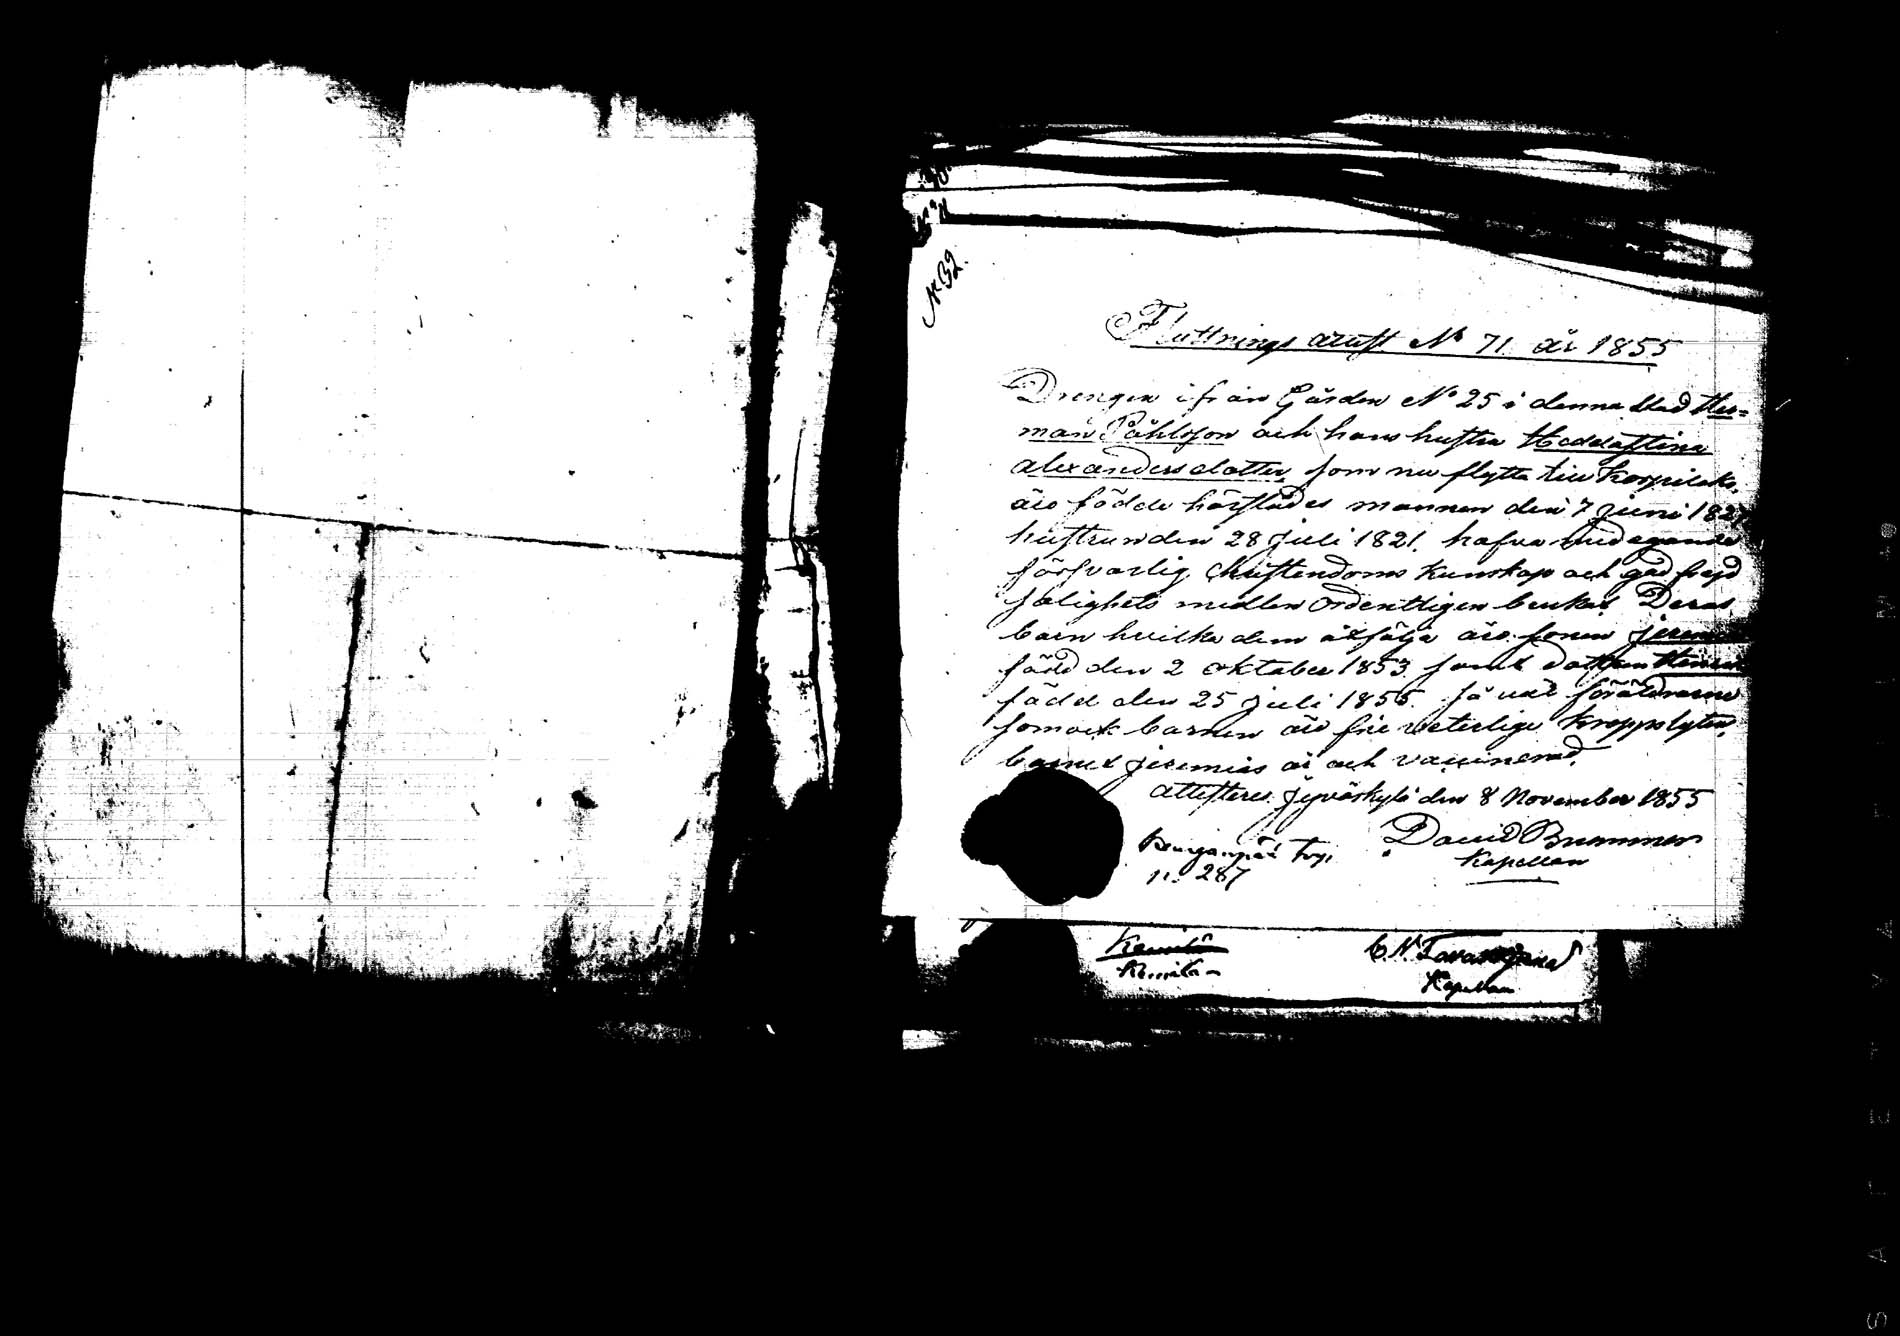 N 32.
Flyttnings attest No 71 år 1855
Drengen ifrån Gården No 25 i denna Stad Her=
man Påhlsson och hans hustru Heddastina
Alexandersdotter som nu flytta till Korpilaks,
äro födde härstädes mannen den 7 Juni 182
hustrun den 28 Juli 1821. hafva
försvarlig Christendoms Kunskap och god frejd
salighets medlen Ordenttligen Deras
barn hvilka dem åtfölja äro sonen Jeremias
född den 2 Oktober 1853 samt dottren
född den 25 Juli 1855. så väl föräldrarne
som ock barnen äro frie veterlige Kroppslyten,
barnet Jeremias är ock vaccinerad,
Attesteres Jyväskylä den 8 November 1855
David Brummer
Kapellan
no 287
C. N. Tavaststjerna
Kapellan